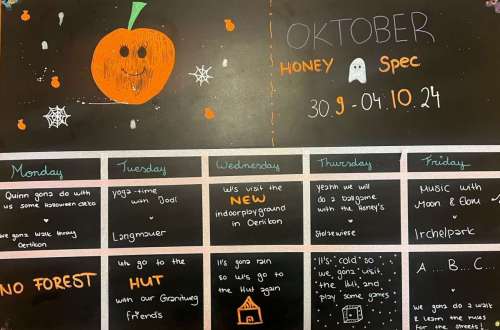 OKTOBER
HONEY Spec
30.9-04.10.24
Monday
Tuesday
Wednesday
Thursday
Friday
Quinn gona do with
us some Halloween deko
We gona walk threw
Oerlikon
yoga-time
with Dodi
Langmauer
let's visit the
NEW
indoorplayground
in Oerlikon
yeahh we will
do a ballgame
with the Honey's
Stolzewiese
Music with
Moon &
Irchelpark
NO FOREST
lets go to the
HUT
with our Granitweg
friends
It's gona rain
so lets go to
the Hut again
It's cold so
we gona visit
the Hut and
play some games
A... B... C...
we gona do a walk
& learn the rules
for the streets!